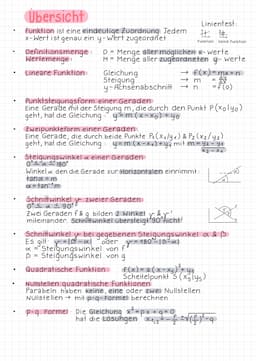 Übersicht
Funktion ist eine eindeutige Zuordnung. Jedem
x-Wert ist genau ein y-Wert zugeordnet
Linientest:
Funktion keine Funktion
Definitionsmenge: D = Menge aller möglichen x-werte
Wertemenge: H = Menge aller zugeordneten y-werte
Lineare Funktion: Gleichung → f(x)=mx+n
Steigung → m =
y-Achsenabschnitt → n =f(0)
Punktsteigungsform einer Geraden:
Eine Gerade mit der Steigung m, die durch den Punkt P(x₀|y₀)
geht, hat die Gleichung: y=m(x-x₀)+y₀
Zweipunkteform einer Geraden:
Eine Gerade, die durch beide Punkte P₁(x₁|y₁) & P₂(x₂|y₂)
geht, hat die Gleichung: y=m(x-x₁)+y₁ mit m=
Steigungswinkel α einer Geraden:
0°≤α≤180°
Winkel α den die Gerade zur Horizontalen einnimmt
tanα=m
α=tan⁻¹m
Schnittwinkel γ zweier Geraden:
0°≤γ≤90°
Zwei Geraden f & g bilden 2 Winkel γ & γ'
miteinander. Schnittwinkel übersteigt 90° nicht!
Schnittwinkel γ bei gegebenen Steigungswinkel α & β
Es gilt: oder
α = Steigungswinkel von f
β = Steigungswinkel von g
Quadratische Funktion: f(x)=a(x-xₛ)²+yₛ
Scheitelpunkt S(xₛ|yₛ)
Nullstellen quadratische Funktionen
Parabeln haben keine, eine oder zwei Nullstellen
Nullstellen → mit p-q-Formel berechnen
p-q Formel: Die Gleichung x²+px+q=0
hat die Lösungen